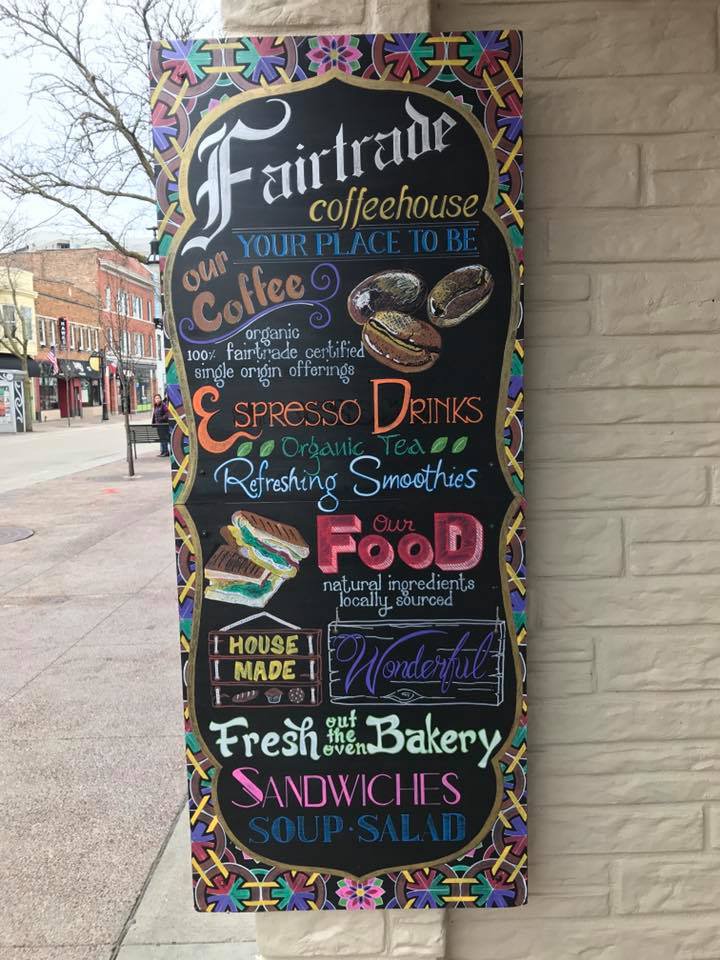 Fairtrade
coffeehouse
YOUR PLACE TO BE
our
Coffee
organic
100% fairtrade certified
single origin offerings
ESPRESSO DRINKS
Organic Tea
Refreshing Smoothies
Our
FOOD
natural ingredients
locally sourced
HOUSE
MADE
Wonderful
Fresh out the oven Bakery
SANDWICHES
SOUP · SALAD